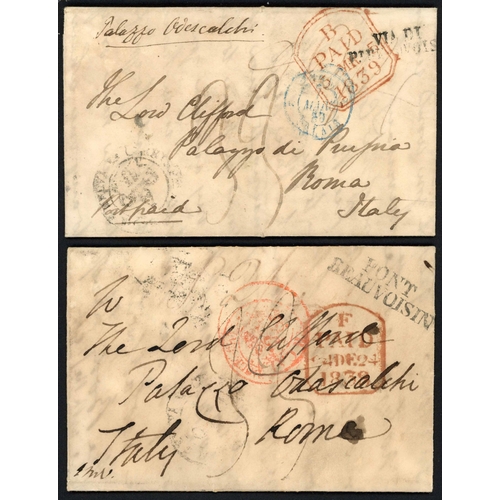 Palazzo Odescalchi
B
PAID
1839
VIA DI
The Lord Clifford
Palazzo di Prussia
Roma
Italy
Postpaid
PONT
BEAUVOISIN
F
PAID
24DE24
1838
The Lord Clifford
Palazzo Odascalchi
Roma
Italy